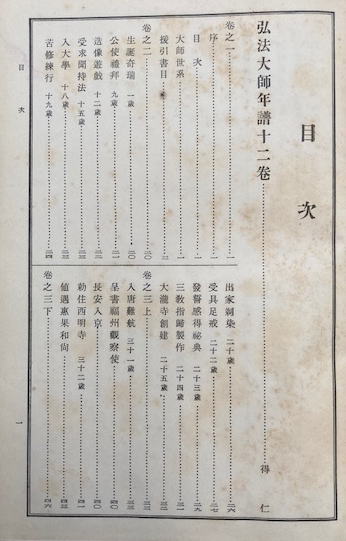 目次
弘法大師年譜十二卷……得仁
卷之一……一
序……一
目次……一
大師世系……一
援引書目……三
卷之二……二〇
生誕奇瑞 一歲……二〇
公使禮拜 九歲……二一
造像遊戲 十二歲……二二
受求聞持法 十五歲……二三
入大學 十八歲……二三
苦修練行 十九歲……二四
出家剃染 二十歲……二六
受具足戒 二十二歲……二七
發誓感得祕典 二十三歲……二九
三敎指歸製作 二十四歲……三一
大瀧寺創建 二十五歲……三二
卷之三上……三三
入唐難航 三十一歲……三三
呈書福州觀察使……三四
長安入京……四〇
勅住西明寺 三十二歲……四一
値遇惠果和尙……四三
卷之三下……四六
目次
一